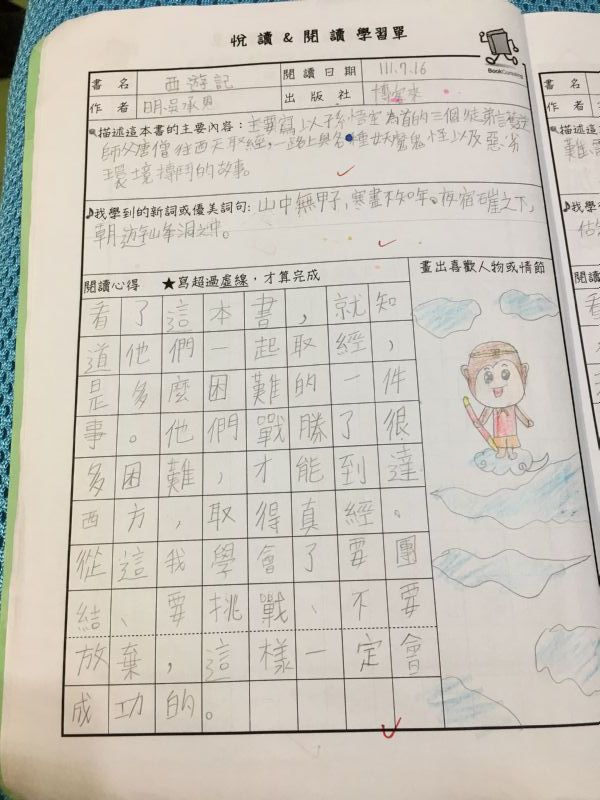 悅讀&閱讀學習單
BookComing
書名 西遊記 閱讀日期 111.7.16
作者 明吳承恩 出版社 博客來
描述這本書的主要內容:主要寫以孫悟空為首的三個徒弟
師父唐僧往西天取經,一路上與各種妖魔鬼怪以及惡劣
環境搏鬥的故事。
♪我學到的新詞或優美詞句:山中無甲子,寒盡不知年。夜宿崖之下,
朝遊山洞之中。
閱讀心得 ★寫超過虛線,才算完成 畫出喜歡人物或情節
看了這本書,就知
道他們一起取經,
是多麼困難的一件
事。他們戰勝了很
多困難,才能到達
西方,取得真經。
從這我學會了要團
結、要挑戰、不要
放棄,這樣一定會
成功的。